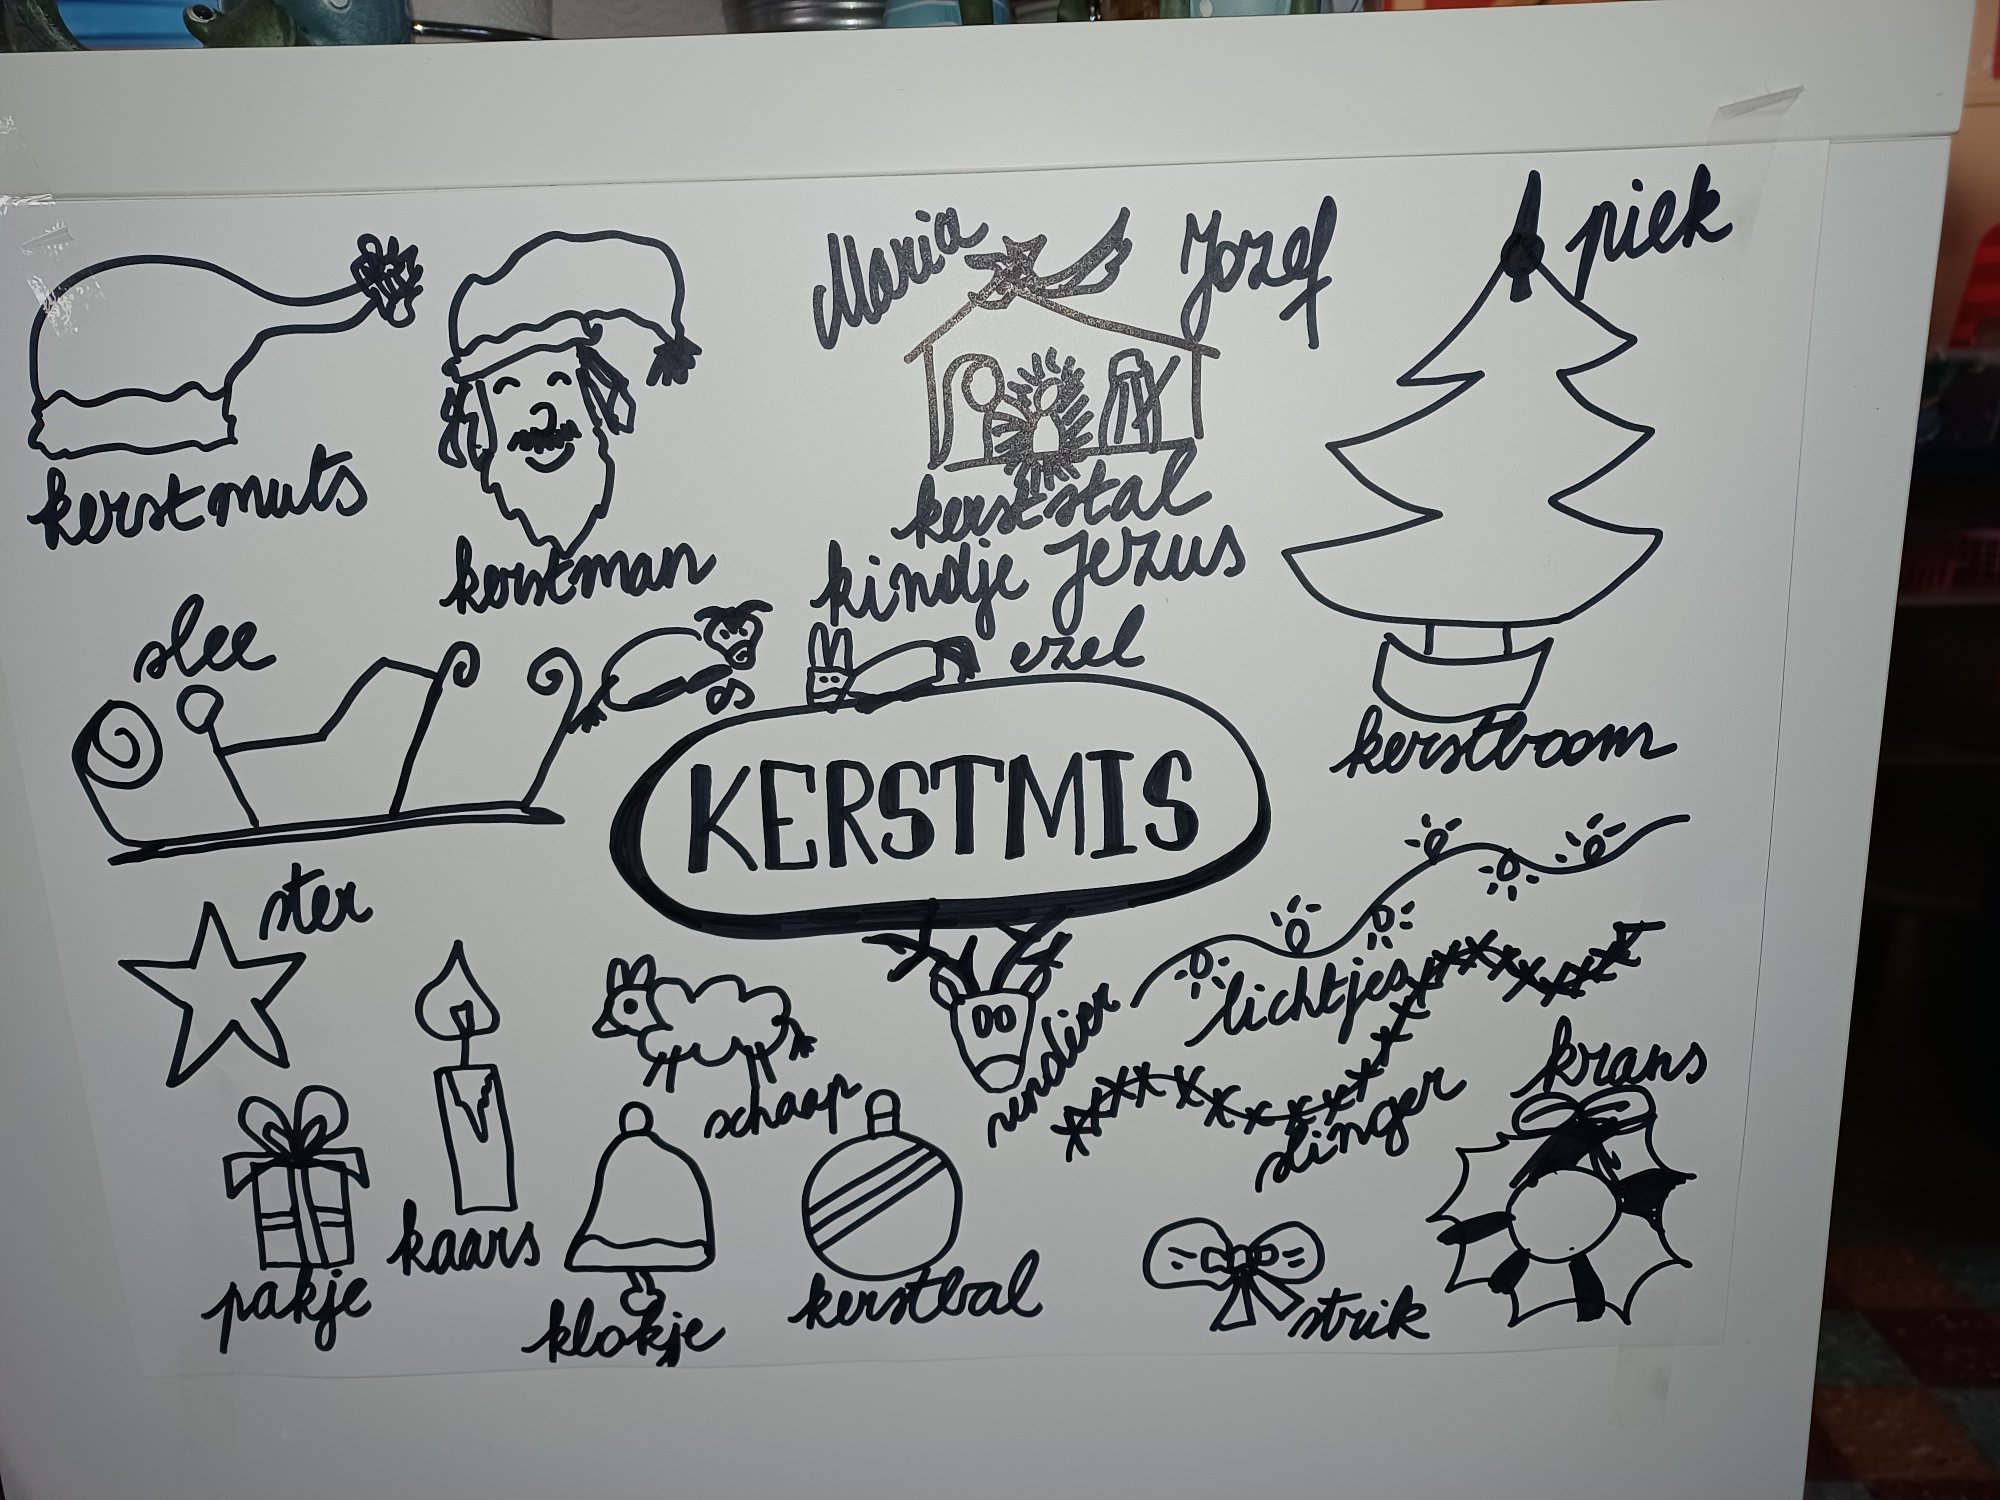 Maria
Jozef
piek
kerstmuts
kerstman
kerststal
kindje Jezus
slee
os
ezel
kerstboom
KERSTMIS
ster
lichtjes
rendier
schaap
slinger
krans
kaars
pakje
klokje
kerstbal
strik